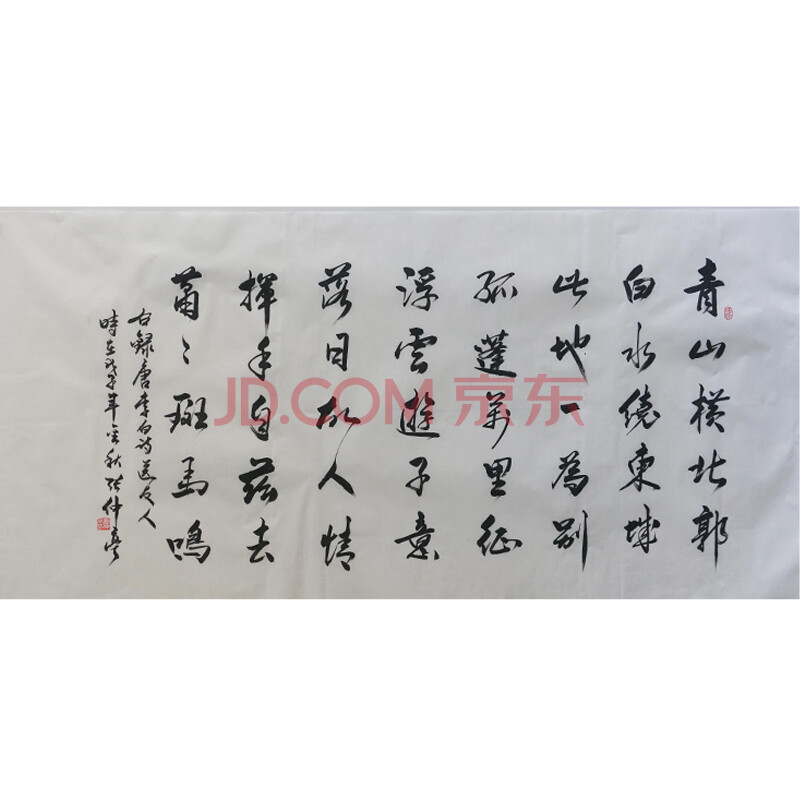 青山橫北郭
白水繞東城
此地一為別
孤蓬萬里征
浮雲遊子意
落日故人情
揮手自茲去
蕭〻斑馬鳴
右錄唐李白詩送友人
時在戊子年金秋張仲亭
JD.COM 京东